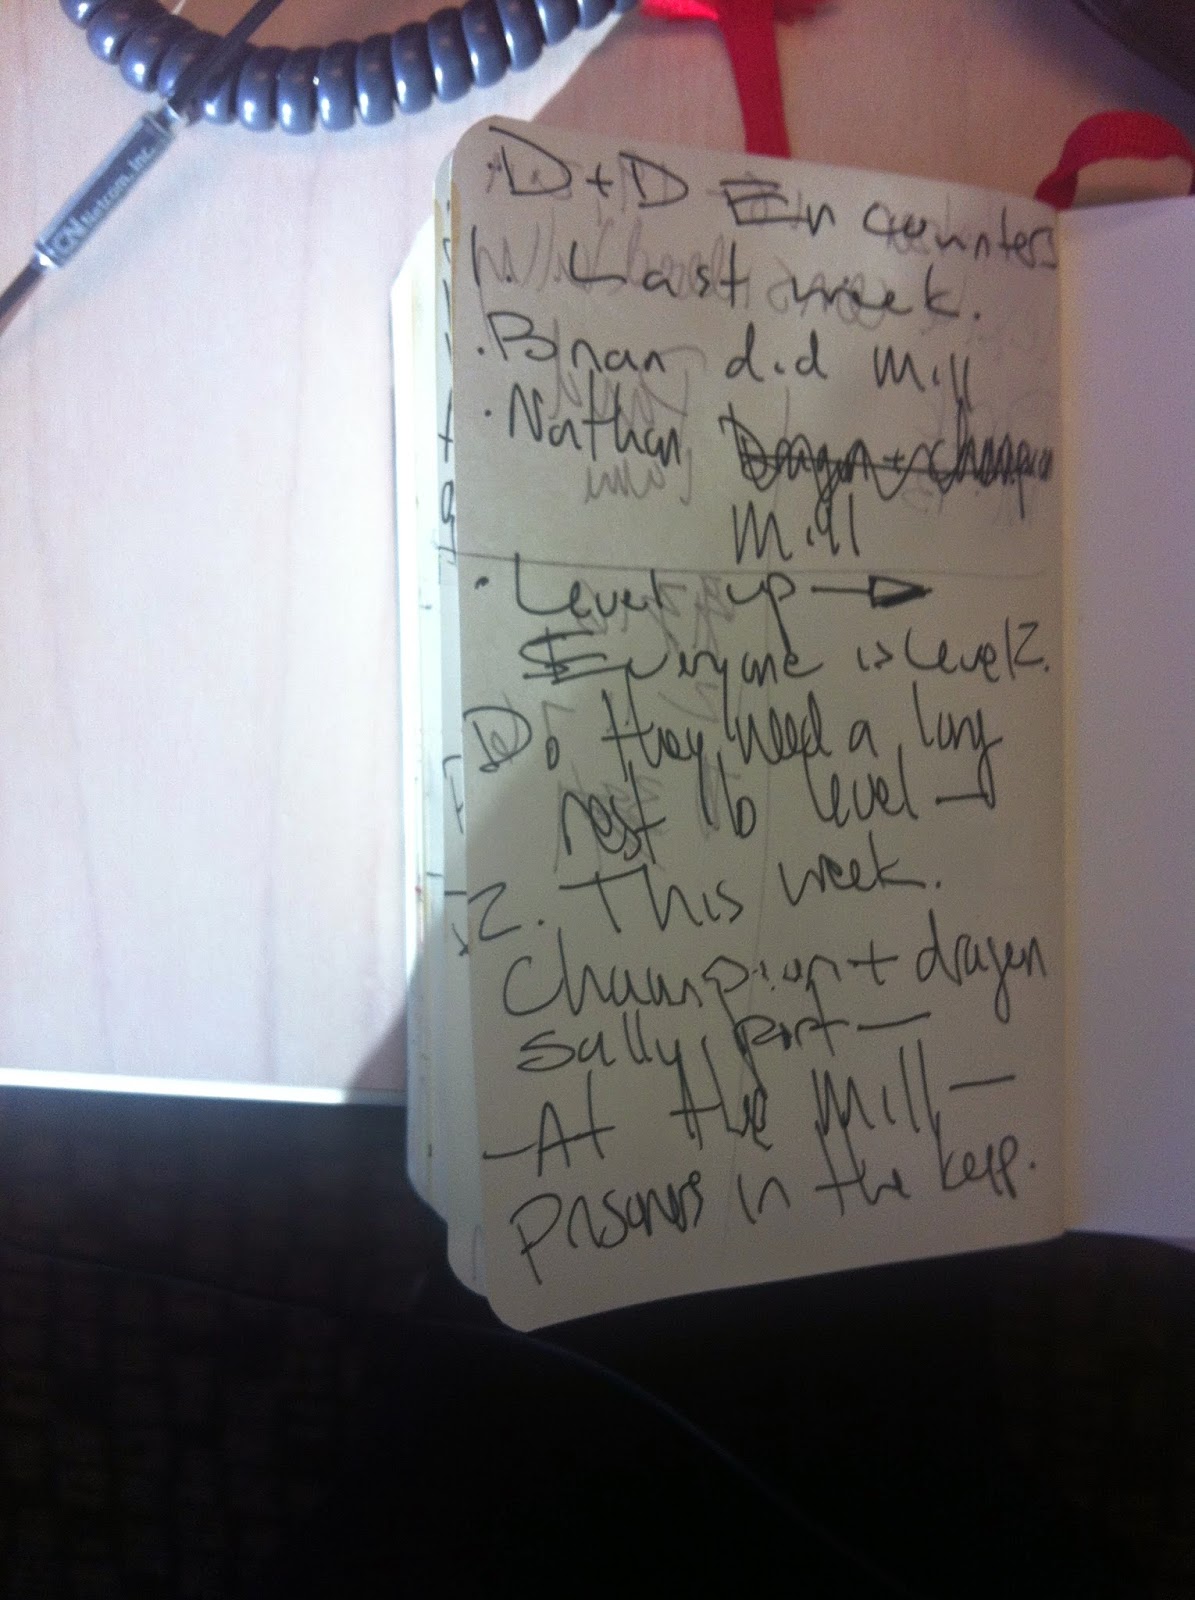 CN Netcom, Inc.
· D + D Encounters
1. Last week.
· Brian did Mill
· Nathan Dragon + champion
Mill
· Level up →
Everyone is level 2.
Do they need a long
rest to level —
2. This week.
Champion + dragon
sally port —
— At the Mill —
Prisoners in the keep.